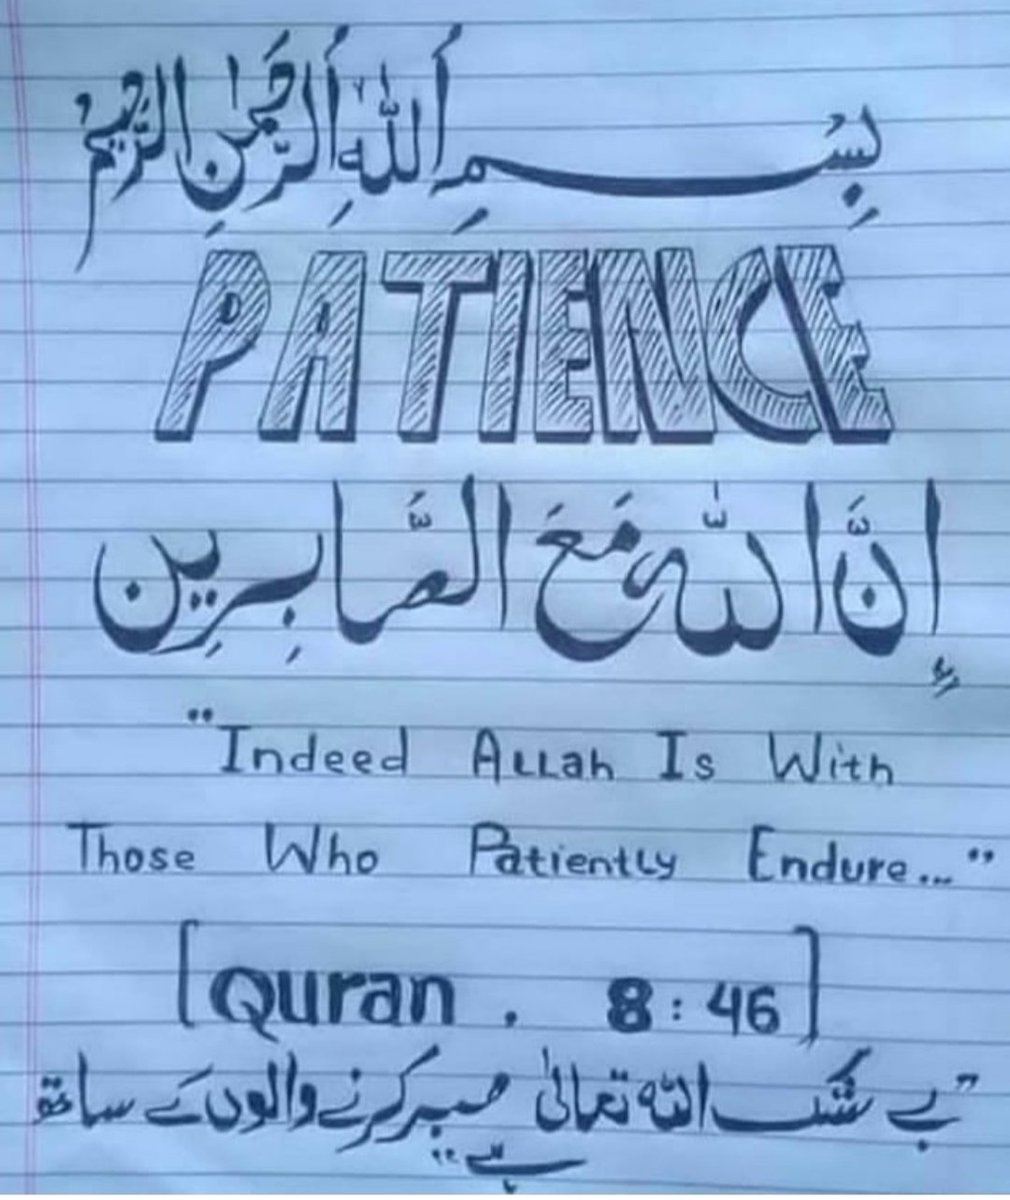 بِسْمِ اَللّٰهِ اَلرَّحْمٰنِ الرَّحِيْمُ
PATIENCE
إِنَّ اللّٰه مَعَ الصَّابِرِين
"Indeed Allah Is With
Those Who Patiently Endure..."
[Quran . 8:46]
"بے شک اللہ تعالیٰ صبر کرنے والوں کے ساتھ
ہے"